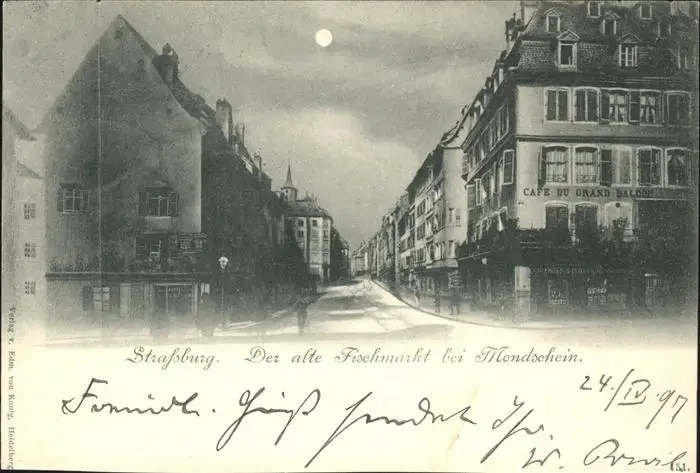 CAFE DU GRAND BALCON
Straßburg. Der alte Fischmarkt bei Mondschein.
24./IV. 97
Freundl. Gruß sendet Ihr
Verlag v. Edm. von König, Heidelberg
151.